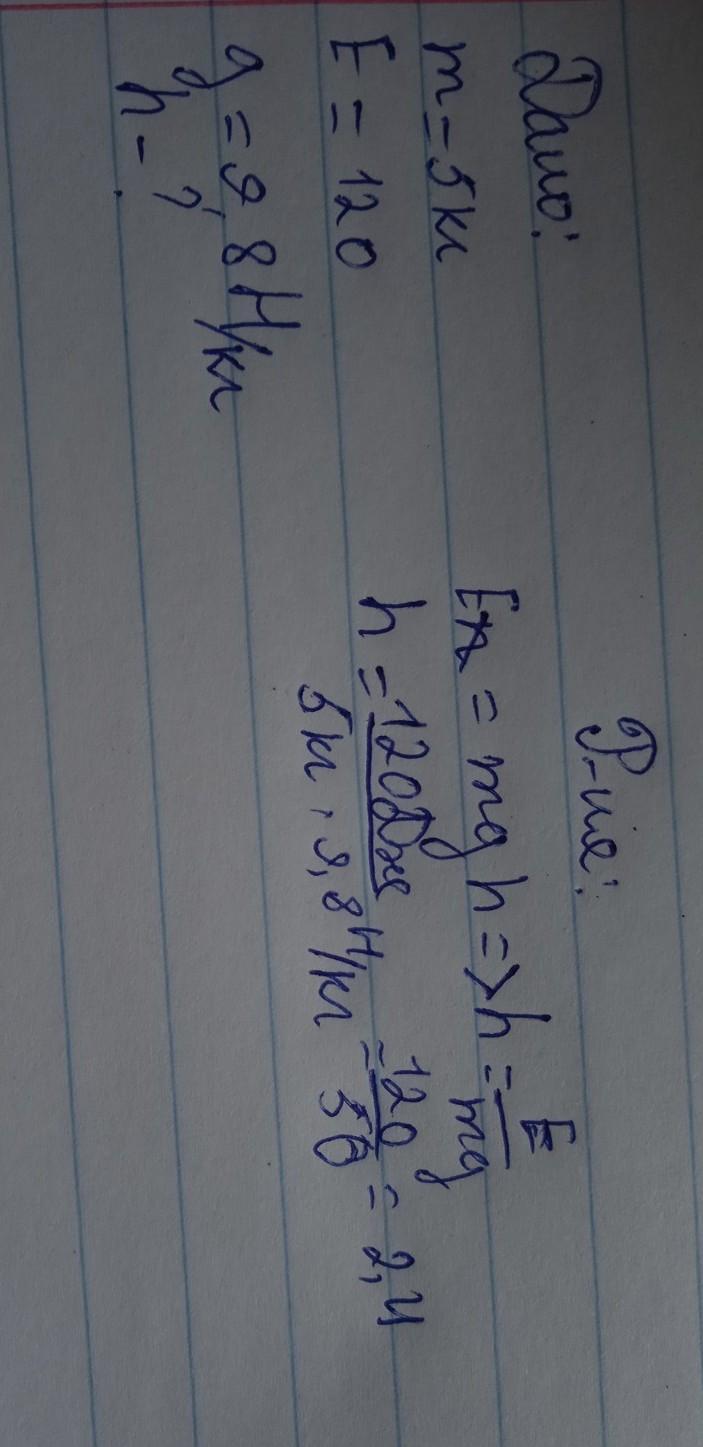 Дано:
m = 5 кг
E = 120
g = 9,8 Н/кг
h - ?
Р-ние:
Eп = mgh => h = E/mg
h = 120Дж/5кг · 9,8 Н/кг = 120/50 = 2,4